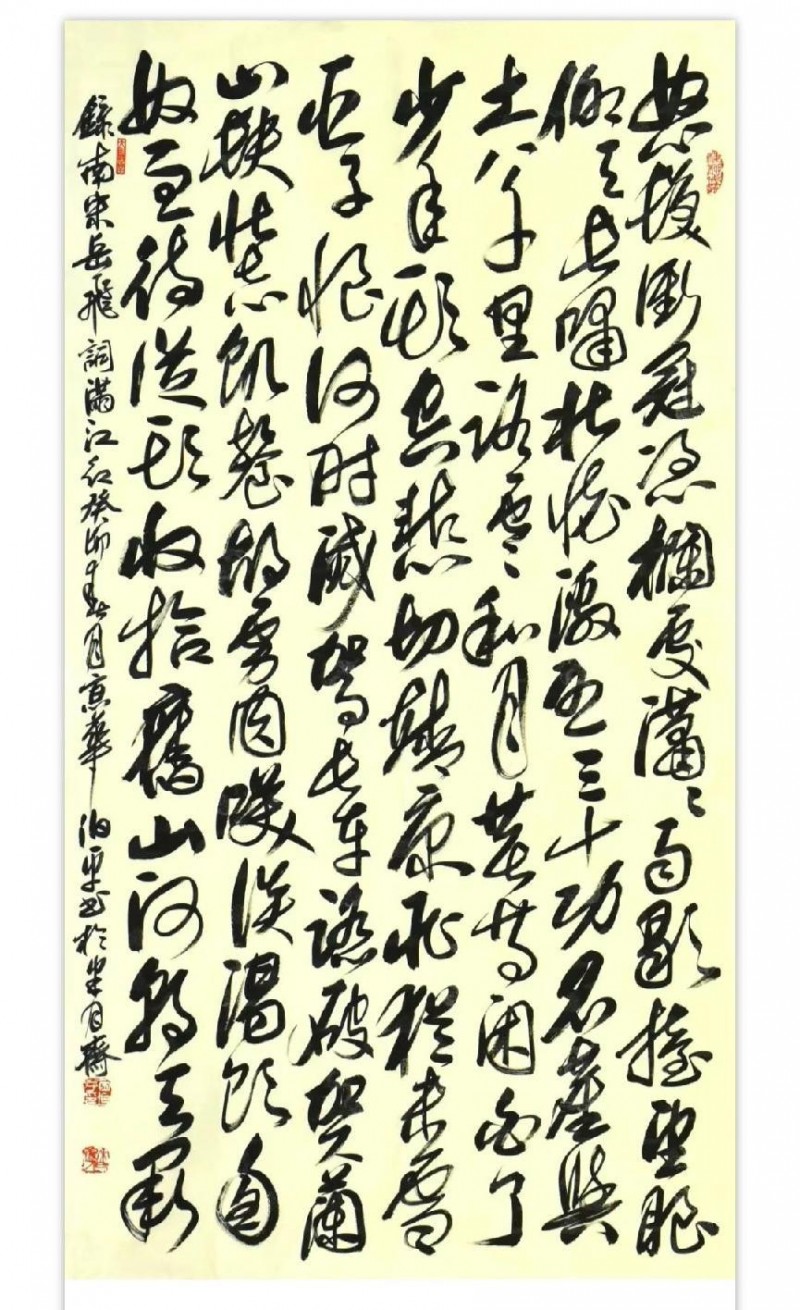 怒髮衝冠憑欄處瀟〻雨歇擡望眼
仰天長嘯壯懷激烈三十功名塵與
土八千里路雲和月莫等閑白了
少年頭空悲切靖康恥猶未雪
臣子恨何時滅駕長車踏破賀蘭
山缺壯志飢餐胡虜肉笑談渴飲匈
奴血待從頭收拾舊山河朝天闕
錄南宋岳飛詞滿江紅癸卯月京華伯平书於月齋